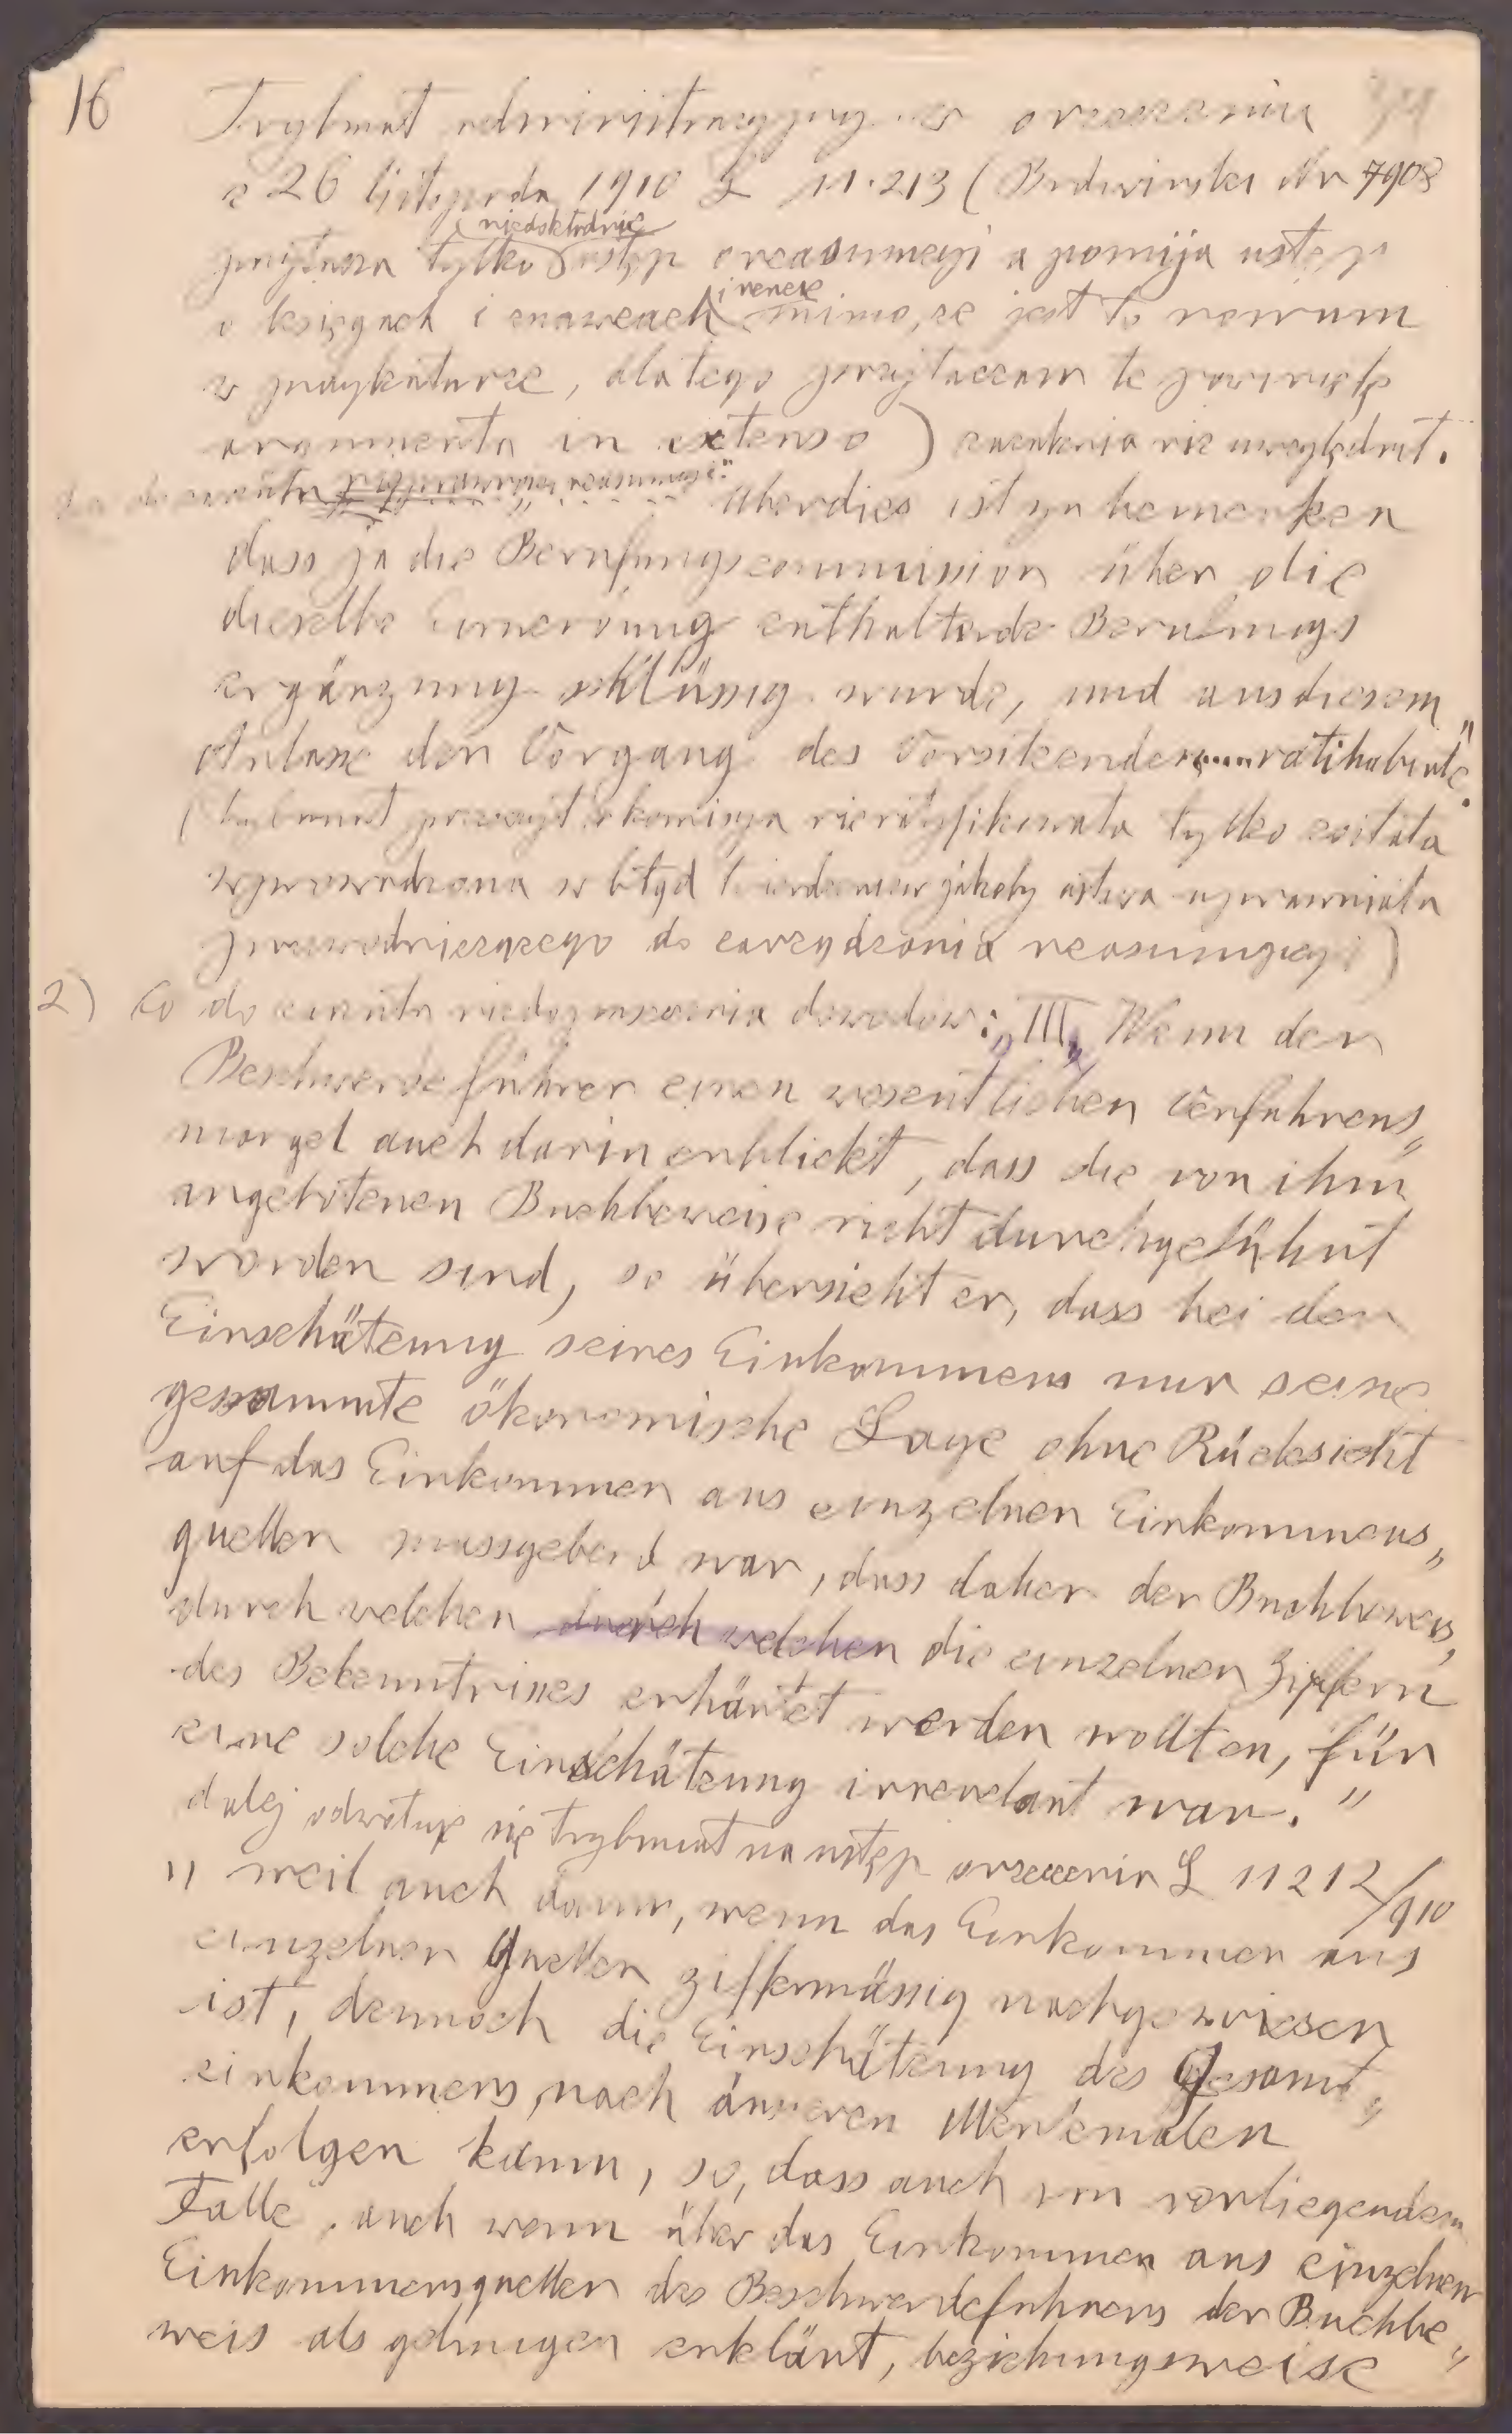 16
Trybunał administracyjny w orzeczeniu
z 26 listopada 1910 L 11.213 (Budwiński Nr 7908
niedokładnie
przytacza tylko ustęp o reasumcyi a pomija ustęp
o księgach i znawcach i rencie mimo, że jest to novum
w judykaturze, dlatego przytaczam te
argumenta in extenso) zażalenia nie uwzględnił.
do zarzutu reasumcyi: „Überdies ist zu bemerken
dass ja die Berufungscommission über die
dieselbe Einwendung enthaltende Berufungs
ergänzung schlüssig wurde, und aus diesem
Anlasse den Vorgang des Vorsitzenden .... ratihabirte."
(Trybunał że komisya nie ratyfikowała tylko została
wprowadzona w błąd twierdzeniem jakoby ustawa uprawniała
przewodniczącego do zarządzenia reasumcyi)
2) Co do zarzutu niedopuszczenia dowodów: „III. Wenn der
Beschwerdeführer einen wesentlichen Verfahrens„
mangel auch darin erblickt, dass die von ihm
angebotenen Buchbeweise nicht durchgeführt
worden sind, so übersieht er, dass bei der
Einschätzung seines Einkommens nur seine
gesammte ökonomische Lage ohne Rücksicht
auf das Einkommen aus einzelnen Einkommens„
quellen massgebend war, dass daher der Buchbeweis,
durch welchen durch welchen die einzelnen Ziffern
des Bekenntnisses erhärtet werden wollten, für
eine solche Einschätzung irrevelant war."
dalej odwołuje się trybunał na ustęp orzeczenia L 11212/910
„ weil auch dann, wenn das Einkommen aus
einzelnen Quellen ziffermässig nachgewiesen
ist, dennoch die Einschätzung des Gesamt„
einkommens, nach äusseren Merkmalen
erfolgen kann, so, dass auch im vorliegenden
Falle, auch wenn über das Einkommen aus einzelnen
Einkommensquellen des Beschwerdeführers der Buchbe„
weis als gelungen erklärt, beziehungsweise